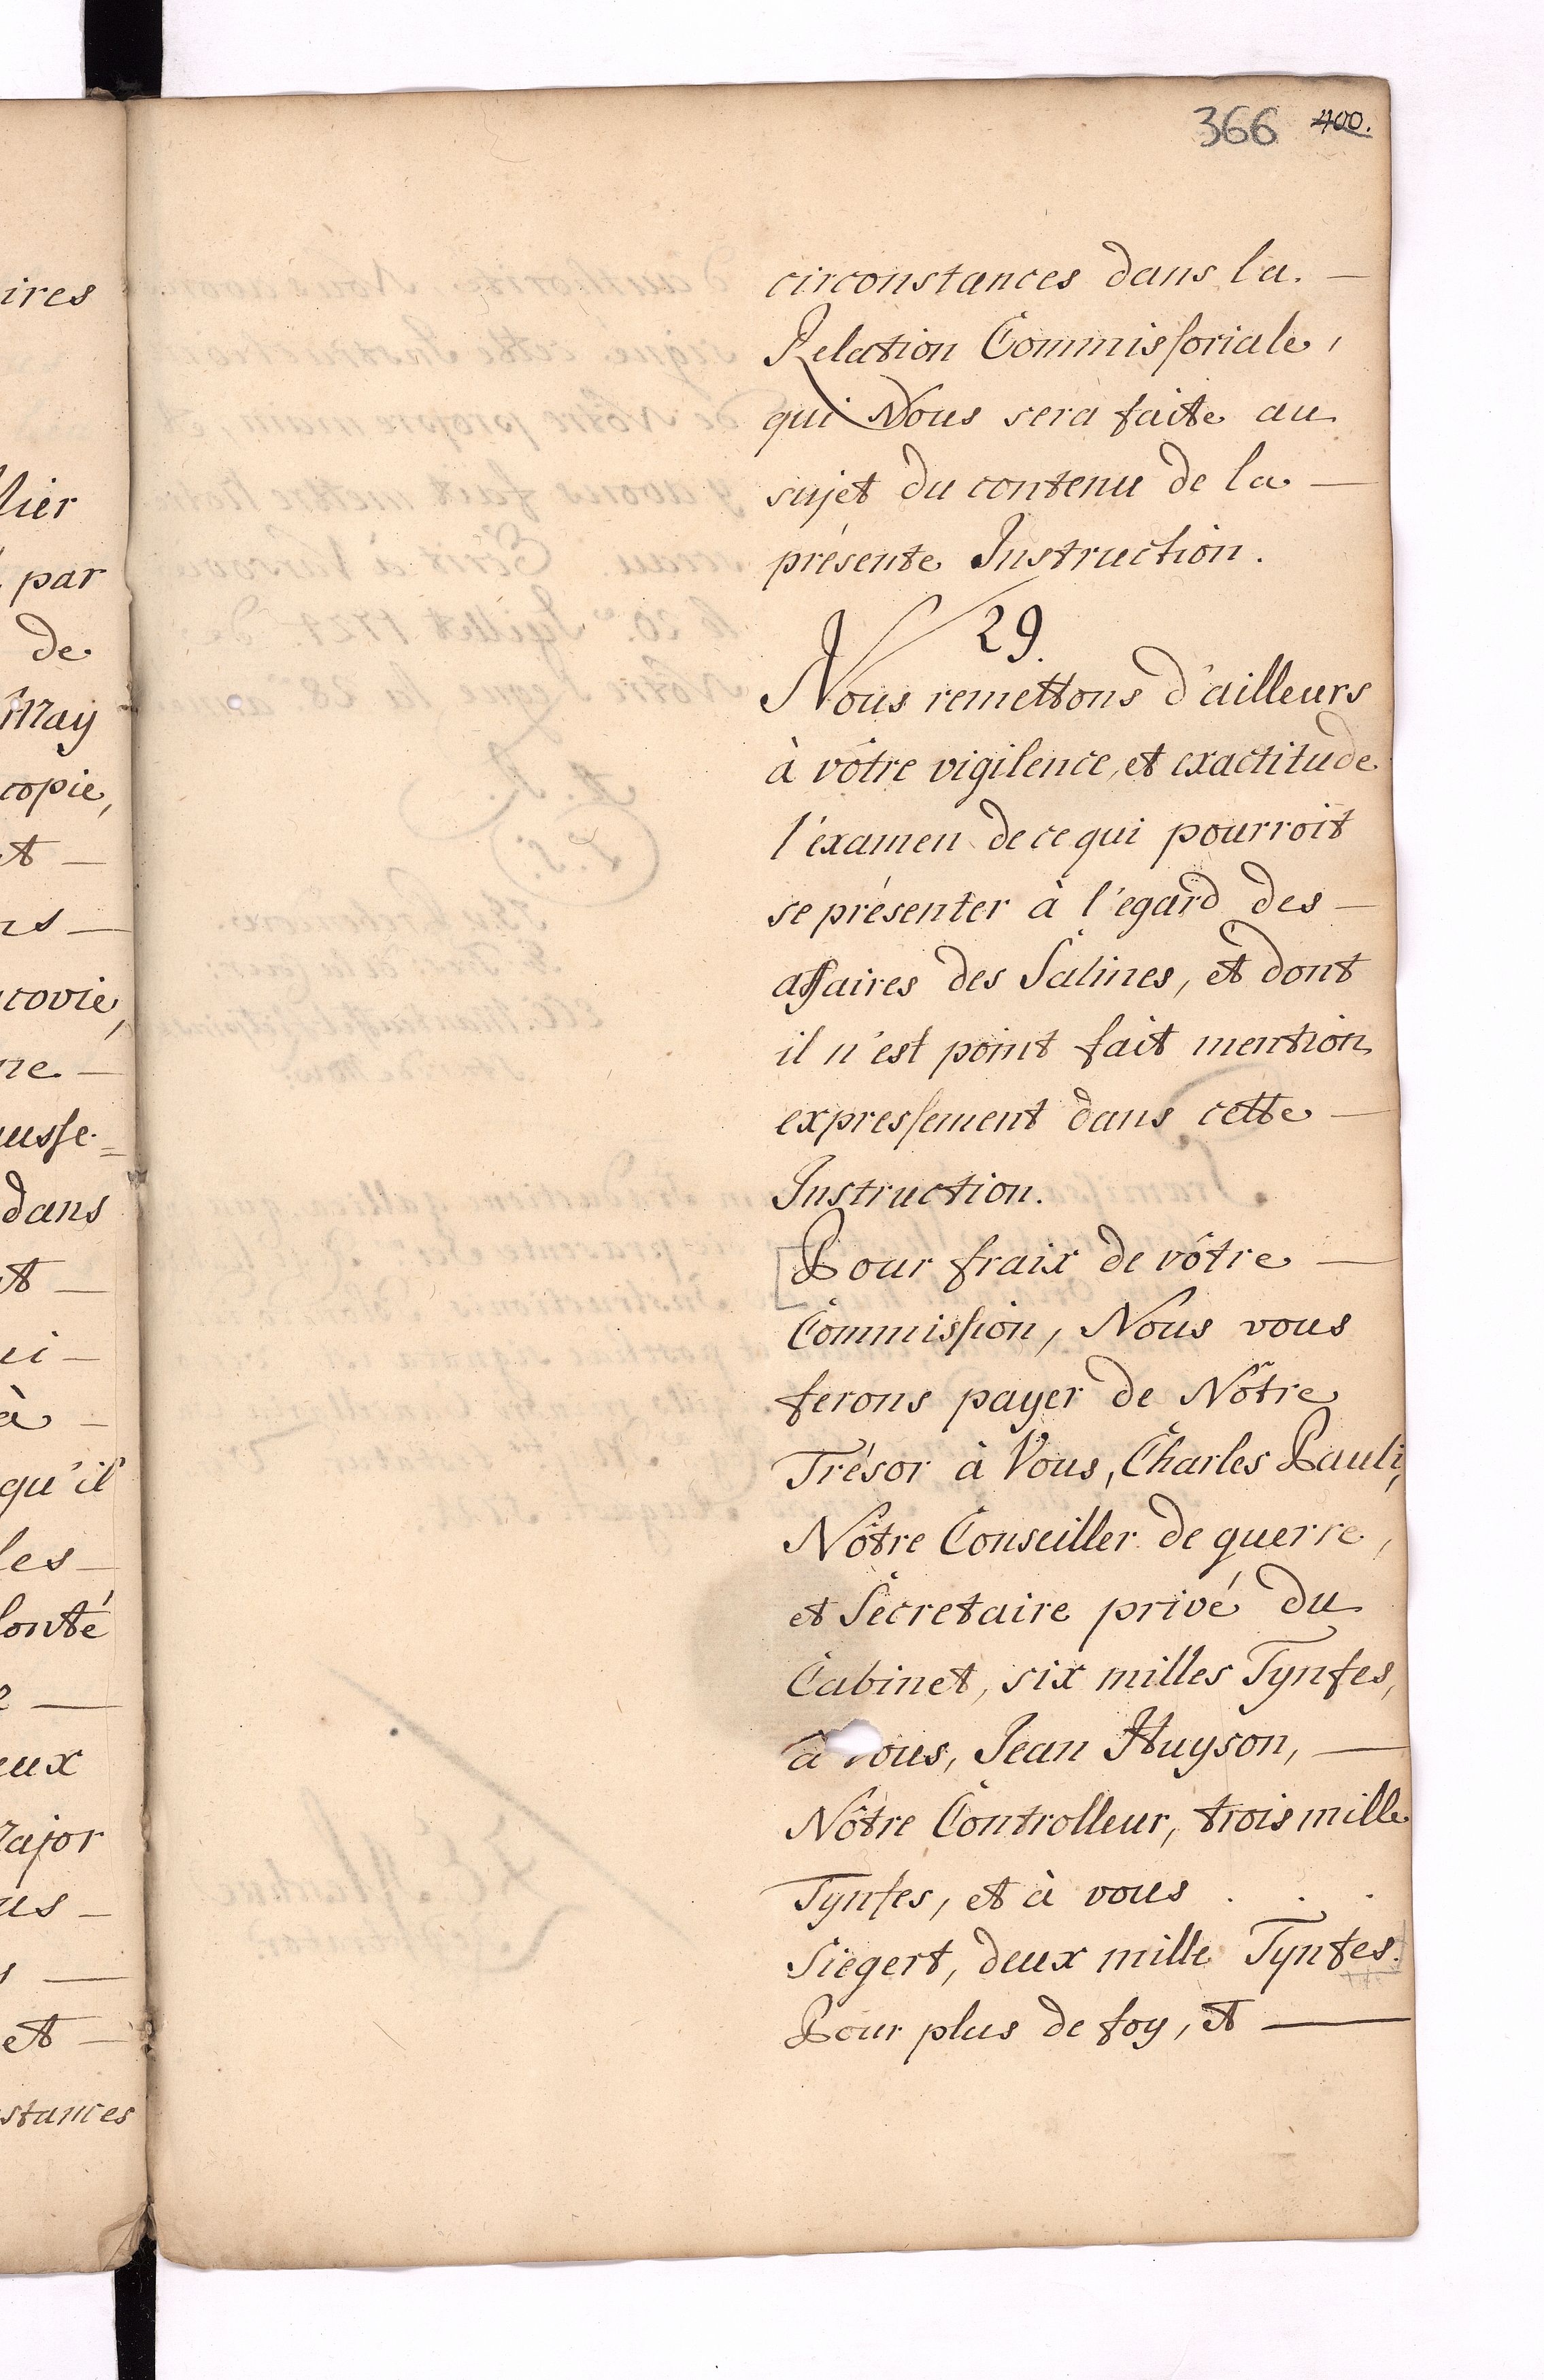 366 400.
circonstances dans la. —
Relation Commissoriale,
qui Nous sera faite au
sujet du contenu de la —
présente Instruction.
29.
Nous remettons d'ailleurs
à vôtre vigilence, et exactitude
l'éxamen de ce qui pourroit
se présenter à l'egard des —
affaires des Salines, et dont
il n'est point fait mention
expressement dans cette —
Instruction.
Pour fraix de vôtre —
Commission, Nous vous
ferons payer de Nôtre
Trésor à Vous, Charles Pauli,
Nôtre Conseiller de guerre,
et Secretaire privé du
Cabinet, six milles Tynfes,
à vous, Jean Huyson, —
Nôtre Controlleur, trois mille
Tynfes, et à vous . . .
Siegert, deux mille Tynfes.
Pour plus de foy, et —
ires
lier
par
de
May
copie,
et —
ns —
covie,
ne —
usse =
dans
et —
ei —
à —
qu'il
les —
lonté
e —
eux
ajor
us —
s —
et —
stances